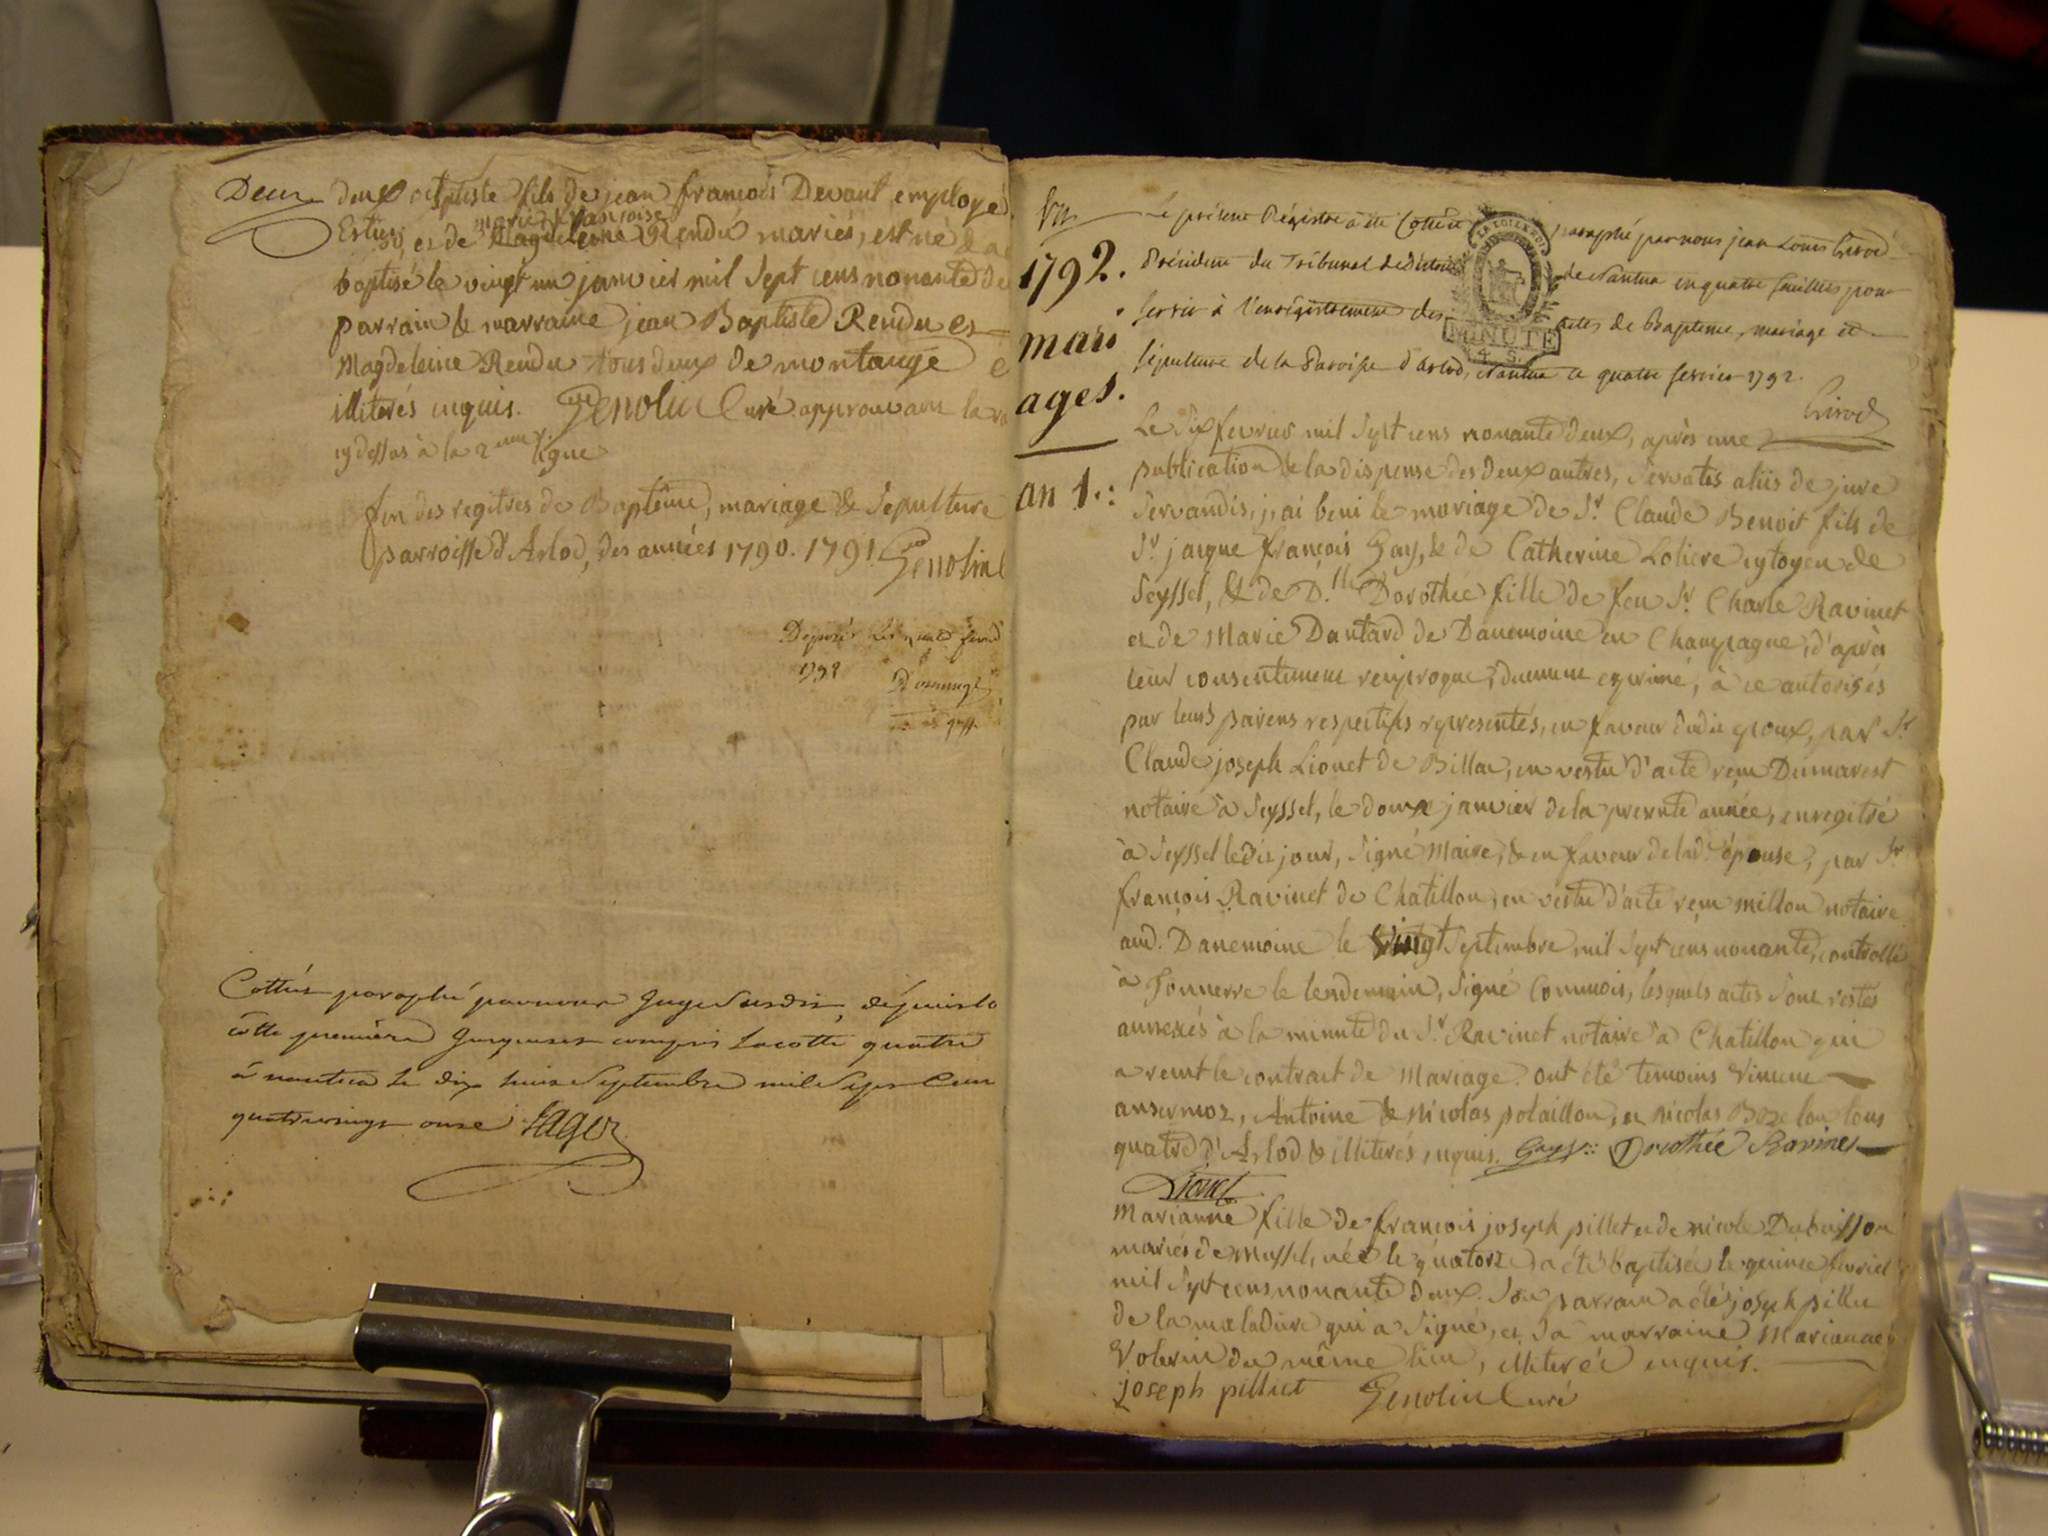 Deux doux Baptiste fils de jean françois Devant employé
marie françoise
et de Magdeleine Rendu mariés, est né &
baptisé le vingt un janvier mil sept cens nonante de
parrain & marraine jean Baptiste Rendu et
Magdeleine Rendu tous deux de montange
illiterés enquis. Genolin Curé approuvant la
cydessus à la 2eme ligne
fin des regitres de Baptême, mariage & Sepulture
parroisse d'Arlod, des années 1790. 1791. Genolin
1792
Cottés paraphé par nous juge susdit, depuis la
cotte première jusques et compris la cotte quatre
à nantua le dix huit Septembre mil Sept Cens
quatrevingt onze
1792.
mari
ages.
an 1.:
Le présent Régistre a été Cotté et paraphé par nous jean Louis Girod
Président du Tribunal de District de Nantua en quatre feuilles pour
servir à l'enrégistrement des actes de Bapteme, mariage et
sépulture de la Paroisse d'Arlod, Nantua ce quatre fevrier 1792.
Girod
LA LOI LE ROI
MINUTE
4. S.
Le dix fevrier mil Sept cens nonante deux, après une
publication & la dispense des deux autres, Servatis aliis de jure
Servandis, j'ai beni le mariage de Sr. Claude Benoit fils de
Sr. jacque françois Gay, & de Catherine Loliere cytoyen de
Seyssel, & de D.lle Dorothée fille de feu Sr. Charle Ravinet
et de Marie Dantard de Danemoine en Champagne, d'après
leur consentement reciproque, duement exprimé, à ce autorisés
par leurs parens respectifs representés, en faveur dudit epoux, par Sr
Claude joseph Lionet de Billia, en vertu d'acte reçu Dumarest
notaire à Seyssel, le douze janvier de la presente année, enregitré
à Seyssel ledit jour, Signé Maire, & en faveur de lad. épouse, par Sr.
françois Ravinet de Chatillon, en vertu d'acte reçu millon notaire
aud. Danemoine le vingt Septembre mil Sept cens nonante, controllé
à Tonnerre le lendemain, Signé Commois, lesquels actes Sont restés
annexés à la minute du Sr. Ravinet notaire à Chatillon qui
a reçu le contract de Mariage. ont été temoins Vincent
ansermoz, Antoine & Nicolas polaillon, et Nicolas Bozelon tous
quatre d'Arlod & illiterés, enquis. Gay Dorothée Ravinet
Lionet
Marianne fille de françois joseph pillet et de nicole Dubuisson
mariés de Mussel, née le quatorze a été baptisée le quinze fevrier
mil Sept cens nonante deux. Son parrain a été joseph pillet
de la maladière qui a Signé, et Sa marraine Marianne
Volerin du même lieu, illiterée enquis.
joseph pilliet Genolin Curé